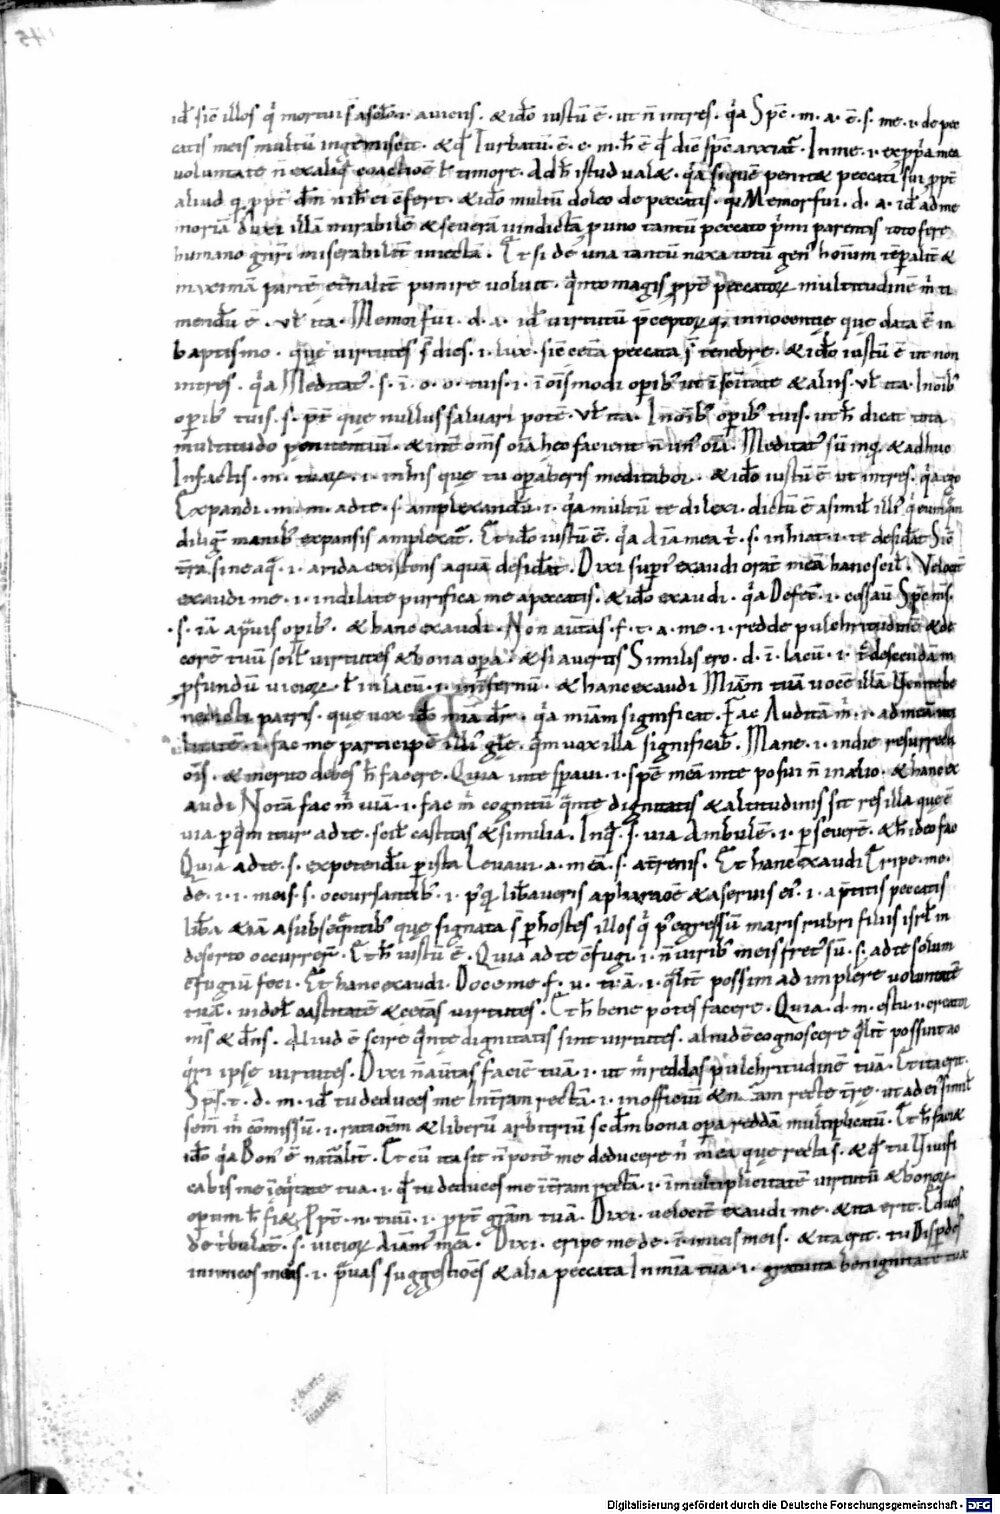 id sic illos q mortui s a solou aurens. & ido iustū ē. ut n̄ intres. qa Spc̄. m. a. ē. s. me. i. de pec
catis meis multū ingemiscit. & qd Turbatū. ē. c. m. h̄ ē qd dic̄ spc̄ anxiat. In me. i. ex ppa mea
voluntate n̄ ex aliq coactioē l timore. Ad h istud valet. qa si quē penitet peccati sui ppt
aliud q ppt dm̄ nih ei c̄fert. & ido multū doleo de peccatis. qa Memor fui. d. a. id ad me
moriā duxi illā mirabilē & severā vindictā p uno tantū peccato pmi parentis toto fere
humano gn̄ri miserabilit̄ iniectā. Et si de una tantū noxa totū gen hoīum tēporalit̄ &
maximā partē etn̄alit̄ punire voluit. qnto magis ppt peccatoꝝ multitudinē m ti
mendū ē. vl ita. Memor fui. d. a. id virtutū pceptoꝝ q innocentię quę data ē in
baptismo. quę virtutes s dies. i. lux. sic cetā peccata s tenebrę. & ido iustū ē ut non
intres. qa Meditat. s. ī. o. o. tuis. i. ī oīs modi opib ut ī sc̄itate & aliis. vl ita. In oīb
opib tuis. s. pt que nullus salvari potē. vl ita. In oīb opib tuis. ut h dicat tota
multitudo penitentiū. & int̄ om̄s oīa hec faciente n̄ un oīa. Meditat sū inq. & adhuc
In factis. m. tuaꝝ. i. in his quę tu opaberis meditabor. & ido iustū ē ut intres. qa ego
Expandi. m. m. ad te. s. amplexandū. i. qa multū te dilexi. dictū ē a simil ill q eum qn
dilig manib expansis amplexat. Et ido iustū ē. qa Aīa mea t. s. inhiat. i. te desidat Sic
t̄ra sine aq. i. arida existens aquā desidat. Dixi supi exaudi orat meā hanc scil. Velocit
exaudi me. i. indilate purifica me a peccatis. & ido exaudi. qa Defec. i. cessavi Spc̄ ms̄.
s. iā apuis opib. & hanc exaudi. Non avtas. f. t. a. me. i. redde pulchritudinē & de
corē tuū scil virtutes & bona opa. & si avertis Similis ero. d. ī. lacū. i. t descendam in
pfundū vicioꝝ l in lacū. i. infernū. & hanc exaudi Miām tuā vocē illā Venite be
nedicti patris. quę vox ido miā dr. qa miām significat. Fac Auditā m. i. ad meā uti
litatē. i. fac me participē illi glę. qm vox illa significab. Mane. i. in die resurrecti
ois. & merito debes h facere. Quia in te spavi. i. spē meā in te posui n̄ in alio. & hanc ex
audi Notā fac m viā. i. fac m cognitū qnte dignitatis & altitudinis sit res illa quę ē
via p qm itur ad te. scil castitas & similia. In q. s. via Ambulē. i. p severē. & h ideo fac
Quia ad te. s. expetendū p ista Levavi. a. meā. s. a t̄renis. Et hanc exaudi Eripe. me.
de. i. i. meis. s. occursantib. i. p qi libaveris a pharaoē & a servis ei. i. a p̄titis peccatis
liba etiā a subseq̄ntib quę signata s p hostes illos q p egressū maris rubri filiis isrl in
deserto occurrer. Et h iustū ē. Quia ad te c̄fugi. i. n̄ virib meis fret sū. s. ad te solum
c̄fugiū feci. Et hanc exaudi. Doce me. f. v. tuā. i. qlit̄ possim adimplere voluntatē
tuā. videl castitatē & cetās virtutes. Et h bene potes facere. Quia. d. m. es tu. i. creator
ms̄ & dn̄s. Aliud ē scire qntę dignitatis sint virtutes. aliud ē cognoscere qlit̄ possint ac
qri ipsę virtutes. Dixi n̄ avtas faciē tuā. i. ut m reddas pulchritudinē tuā. Et ita erit.
Sps̄. t. d. m. id tu deduces me In t̄ram rectā. i. in officiū & n. am recte t̄rę. ut ad ei simil
sem̄ m c̄missū. i. ratioem & liberū arbitriū scdm bona opa reddā multiplicatū. Et h faciet
ido qa Bon ē nat̄alit̄. Et cū ita sit n̄ potē me deducere n̄ in ea quę recta s. & qd tu Vivifi
cabis me ī eqitate tua. i. qd tu deduces me ī t̄ram rectā. i. ī multiplicitatē virtutū & bonoꝝ
opum h fiet Ppt. n. tuū. i. ppt grām tuā. Dixi. velocit̄ exaudi me. & ita erit. Educes
de tbulat. s. vicioꝝ Aiām meā. Dixi. eripe me de. ī imicis meis. & ita erit. tu Disp̄des
inimicos meos. i. p̄vas suggestioēs & alia peccata In miā tua. i. gratuita benignitate tua
Digitalisierung gefördert durch die Deutsche Forschungsgemeinschaft · DFG